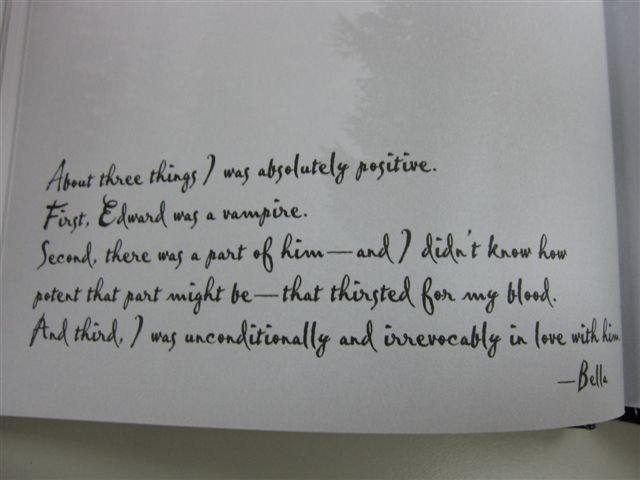 About three things I was absolutely positive.
First, Edward was a vampire.
Second, there was a part of him—and I didn't know how
potent that part might be—that thirsted for my blood.
And third, I was unconditionally and irrevocably in love with him.
—Bella